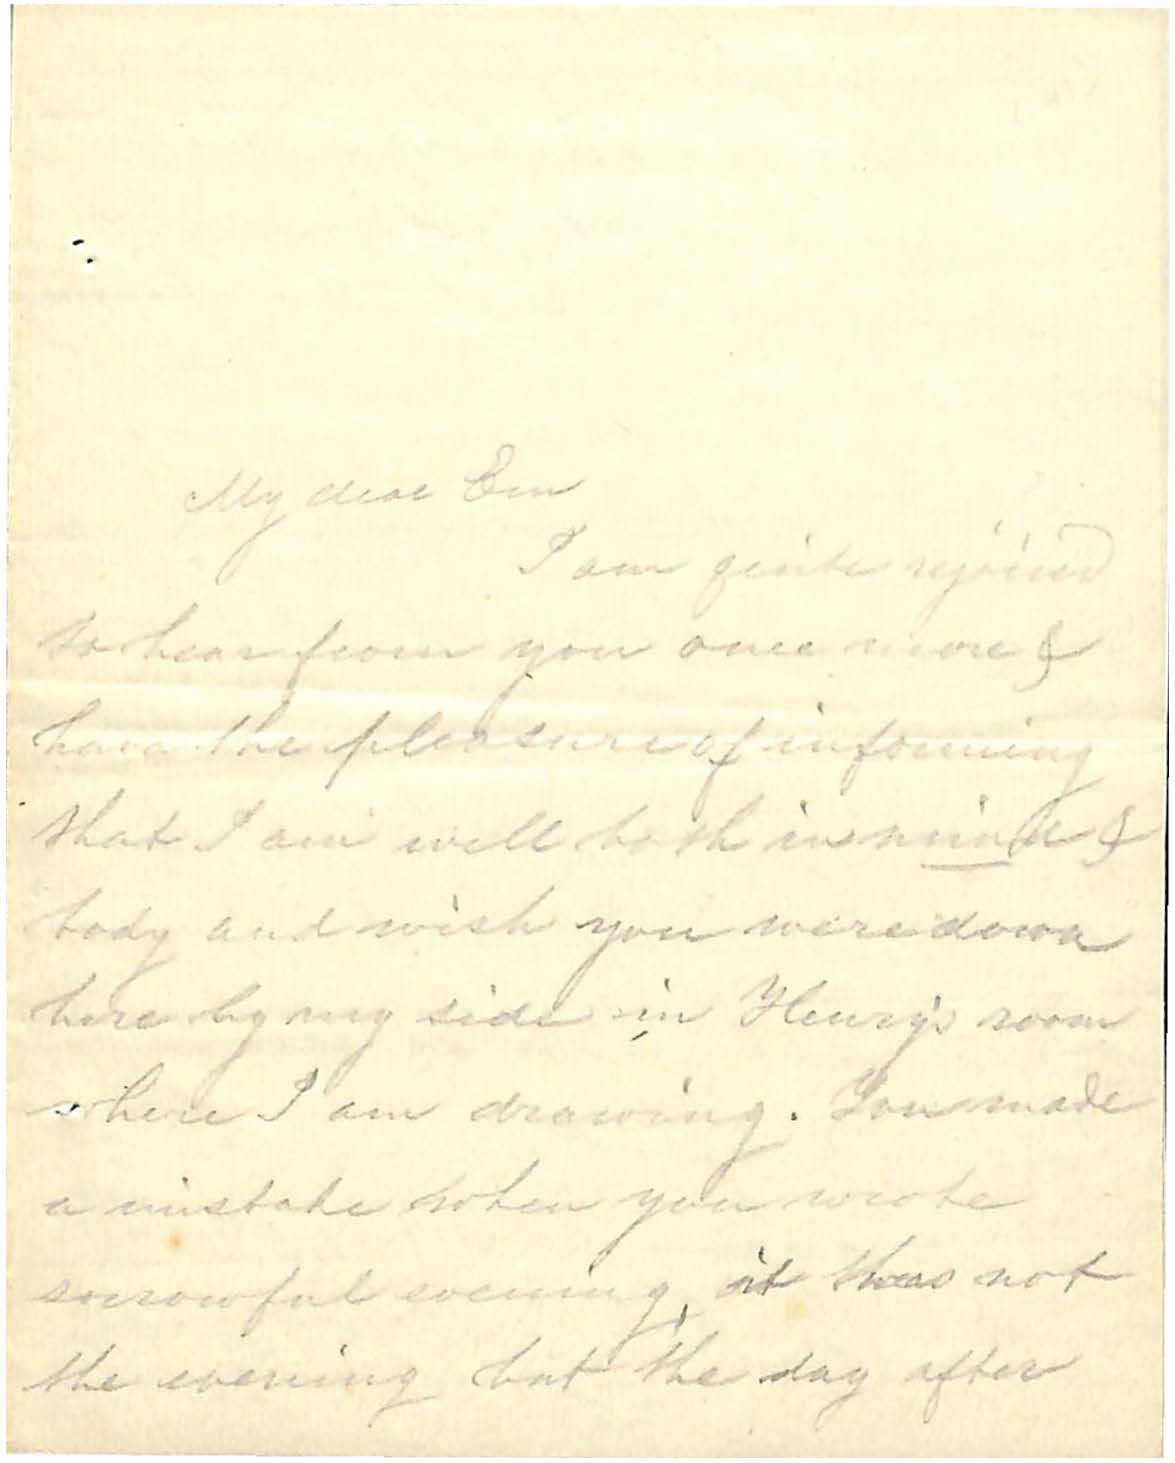 My dear Em
I am quite rejoiced
to hear from you once more &
have the pleasure of informing
that I am well both in mind &
body and wish you were down
here by my side in Henry's room
where I am drawing. You made
a mistake when you wrote
sorrowful evening, it was not
the evening but the day after